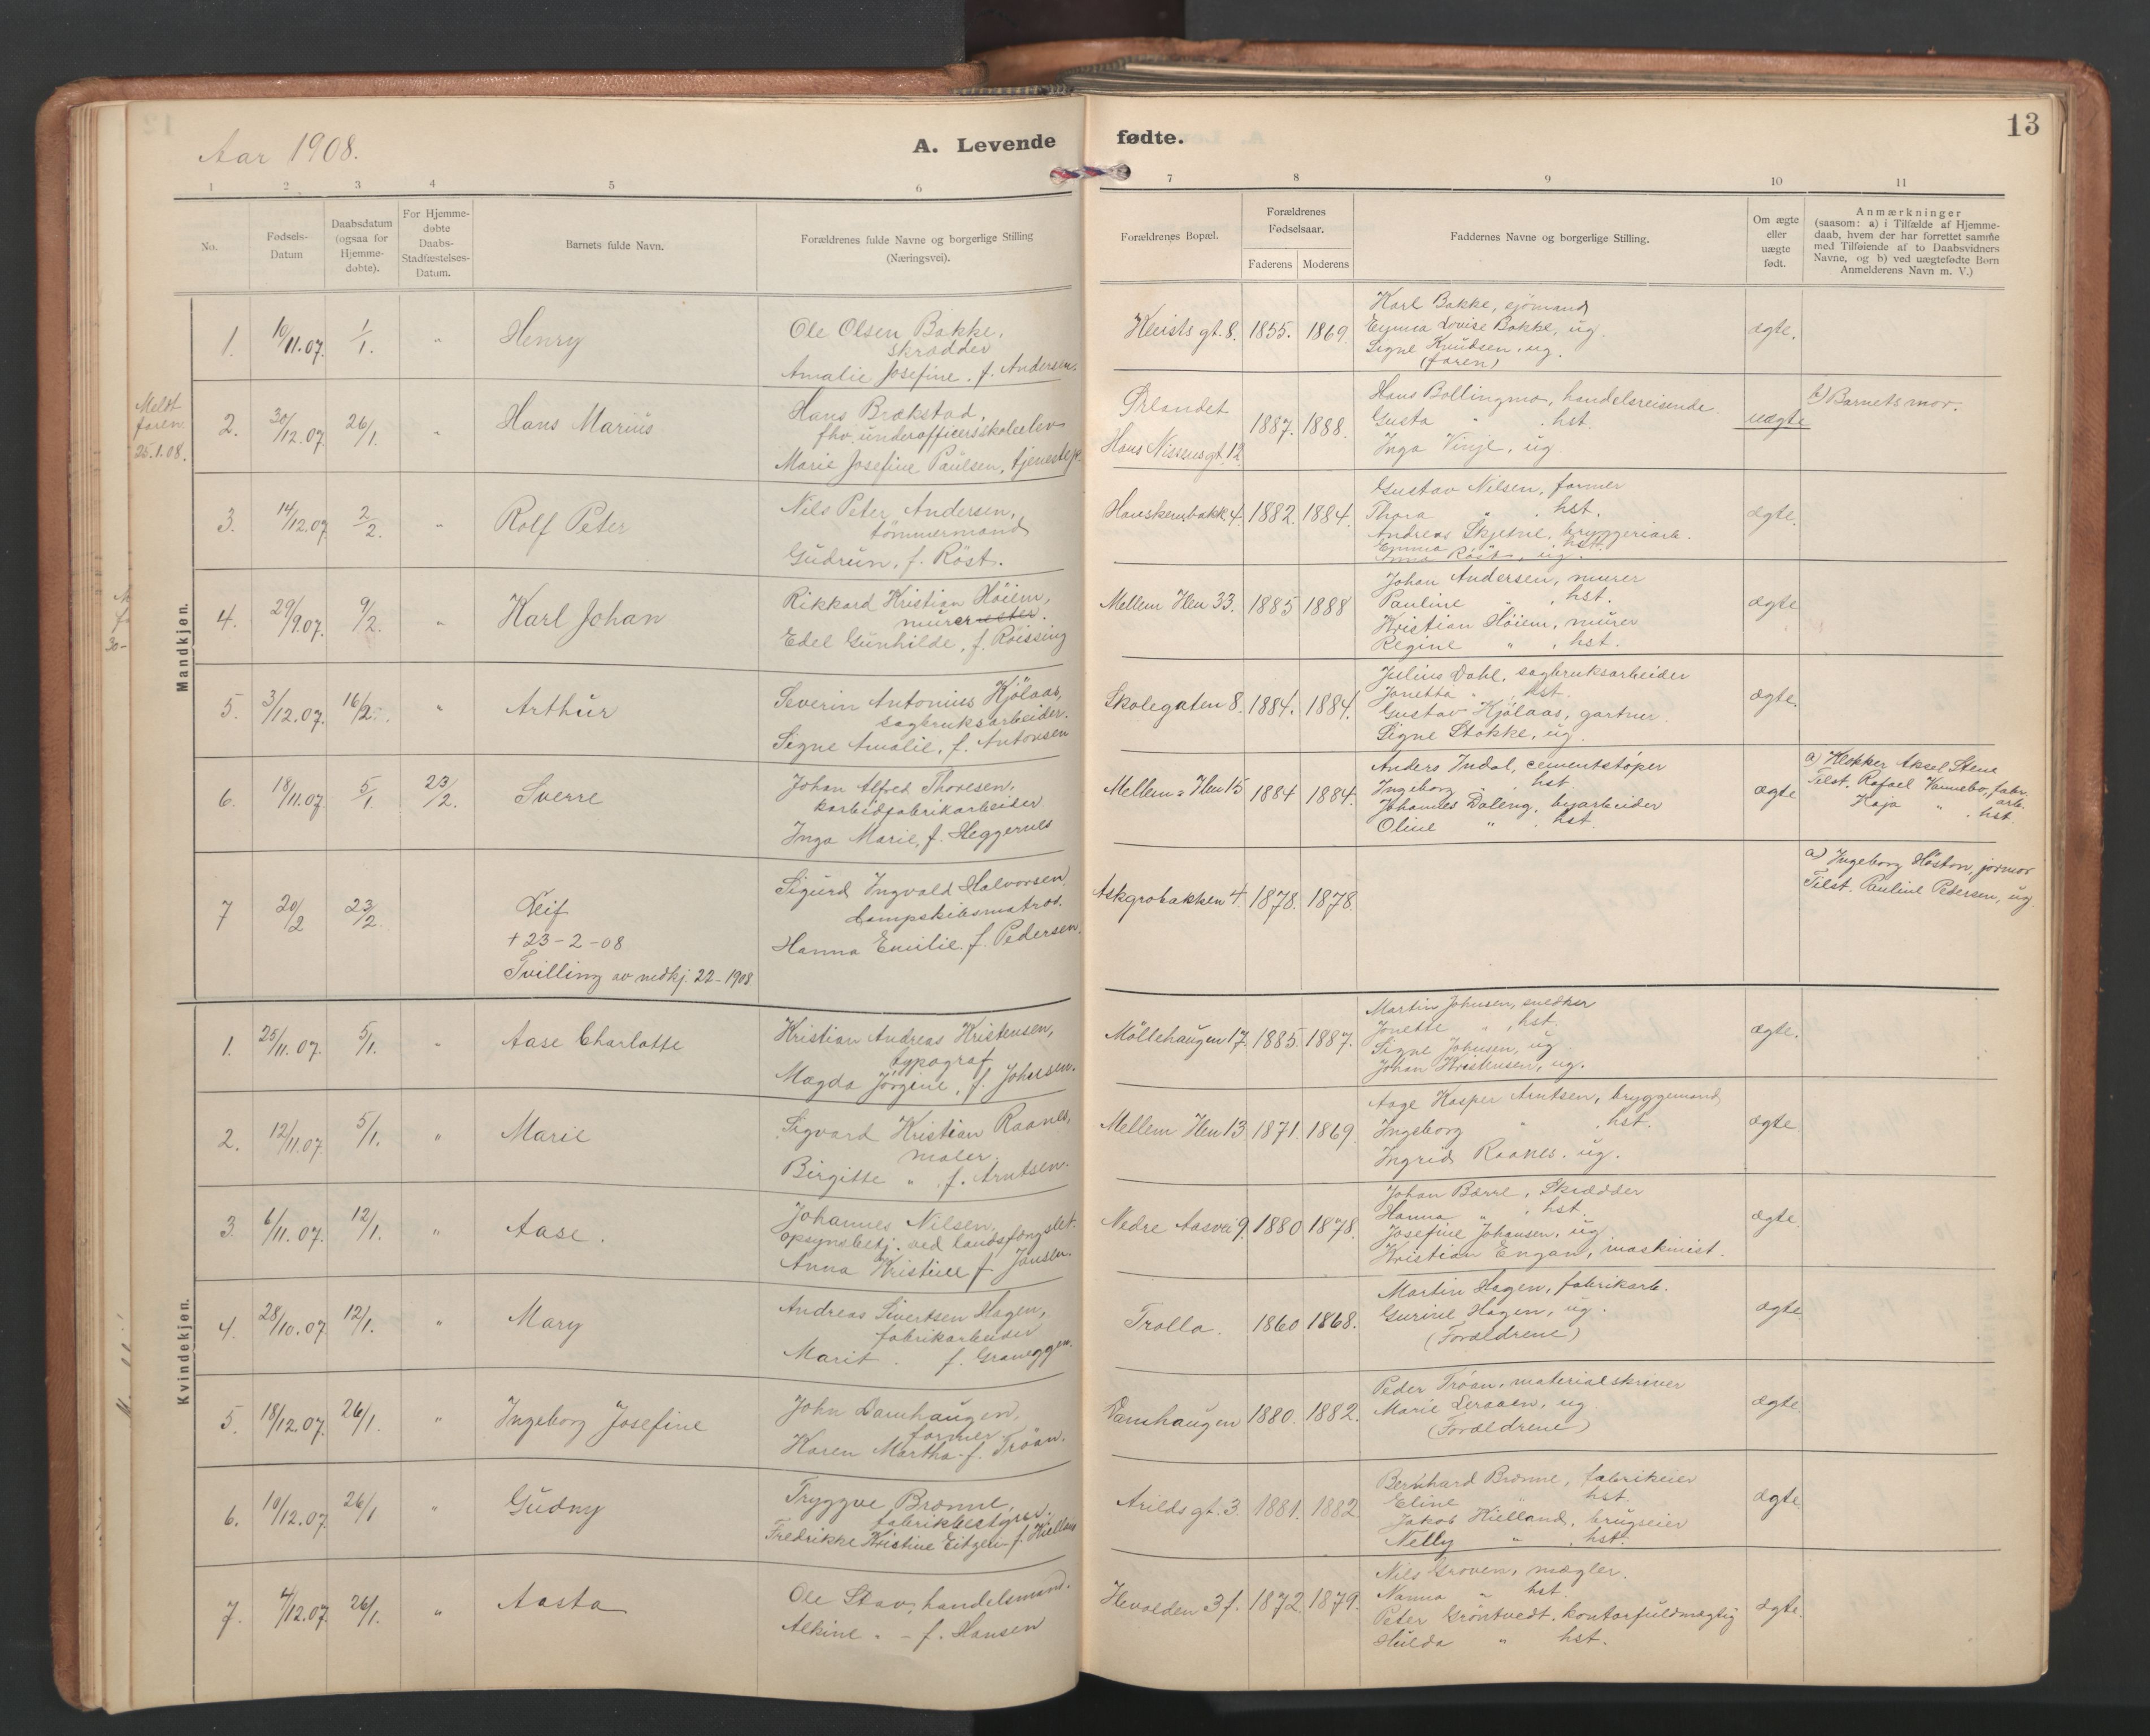 Aar 1908.
A. Levende fødte.
13
1 2 3 4 5 6 7 8 9 10 11
No.
Fødsels-
Datum
Daabsdatum
(ogsaa for
Hjemme-
døbte).
For Hjemme-
døbte
Daabs-
Stadfæstelses-
Datum.
Barnets fulde Navn.
Forældrenes fulde Navne og borgerlige Stilling
(Næringsvei).
Forældrenes Bopæl.
Forældrenes
Fødselsaar.
Faderens
Moderens
Faddernes Navne og borgerlige Stilling.
Om ægte
eller
uægte
født.
Anmærkninger
(saasom: a) i Tilfælde af Hjemme-
daab, hvem der har forrettet samme
med Tilføiende af to Daabsvidners
Navne, og b) ved uægtefødte Børn
Anmelderens Navn m. V.)
Mandkjøn.
1. 10/11.07. 1/1. " Henry
Ole Olsen Bakke,
skrædder
Amalie Josefine, f. Andersen.
Kleists gt. 8. 1855. 1869.
Karl Bakke, sjömand
Emma Lovise Bakke, ug.
Signe Knudsen, ug.
(faren)
ægte.
Meldt
faren
25.1.08.
2. 30/12.07 26/1. " Hans Marius
Hans Brækstad,
fhv. underofficersskoleelev
Marie Josefine Paulsen, tjenestep.
Ørlandet
Hans Nissens gt. 12.
1887. 1888.
Hans Bollingmo, handelsreisende.
Gusta " , hst.
Inga Vinje, ug
uægte
b) Barnets mor.
3. 14/12.07 2/2. " Rolf Peter
Nils Peter Andersen,
tömmermand
Gudrun, f. Röst.
Hanskembakk. 4. 1882. 1884.
Gustav Nilsen, former
Thora " , hst.
Andreas Skjetne, bryggeriarb.
Emma " , hst.
Anna Röst, ug.
ægte.
4. 29/9.07. 9/2. " Karl Johan
Rikkard Kristian Höiem,
murer
Edel Gunhilde, f. Röissing
Mellem Ilen 33. 1885 1888
Johan Andersen, murer
Pauline " , hst.
Kristian Höiem, murer
Regine " , hst.
ægte
5. 3/12.07. 16/2. " Arthur
Severin Antonius Kjölaas,
sagbruksarbeider.
Signe Amalie, f. Antonsen
Skolegaten 8. 1884. 1884.
Julius Dahl, sagbruksarbeider
Jonetta " , hst.
Gustav Kjölaas, gartner.
Signe Stokke, ug.
ægte.
6. 18/11.07 5/1. 23/2. Sverre
Johan Alfred Thoresen,
karbidfabrikarbeider
Inga Marie, f. Heggernes
Mellem Ilen 15 1884 1884.
Anders Indal, cementstöper
Ingeborg " , hst
Johannes Daleng, byarbeider
Oline " , hst.
ægte
a) Klokker Aksel Stene
Tilst. Rafael Vannebo, fabr.
arb.
Kaja " , hst.
7 20/2 23/2. Leif
+ 23-2-08
Tvilling av nedkj. 22-1908.
Sigurd Ingvald Halvorsen,
dampskibsmatros.
Hanna Emilie f. Pedersen.
Askgrobakken 4. 1878. 1878.
a) Ingeborg Höston, jormor
Tilst. Pauline Pedersen, ug.
Kvindekjøn.
1. 25/11.07. 5/1. " Aase Charlotte
Kristian Andreas Kristensen,
typograf
Magda Jörgine, f. Johnsen.
Möllehaugen 17. 1885. 1887.
Martin Johnsen, snedker
Jonette " , hst.
Signe Johnsen, ug
Johan Kristensen, ug.
ægte.
2. 12/11.07. 5/1. " Marie
Sigvard Kristian Raanes,
maler.
Birgitte " , f. Arntsen.
Mellem Ilen 13. 1871. 1869.
Aage Kasper Arntsen, bryggemand
Ingeborg " , hst.
Ingrid Raanes. ug.
ægte
3. 6/11.07. 12/1. " Aase.
Johannes Nilsen,
opsynsbetj. ved landsfængslet.
Anna Kristine f. Jansen.
Nedre Aasvei 9. 1880 1878.
Johan Barre, Skrædder
Hanna " , hst.
Josefine Johansen, ug.
Kristian Engan, maskinist.
ægte.
4. 28/10.07 12/1. " Mary
Andreas Sivertsen Hagen,
fabrikarbeider
Marit . f. Graneggen.
Trolla. 1860 1868.
Martin Hagen, fabrikarb.
Gurine Hagen, ug.
(Forældrene)
ægte
5. 18/12.07. 26/1. " Ingeborg Josefine
John Damhaugen,
former
Karen Martha f. Tröan.
Damhaugen 1880. 1882.
Peder Tröan, materialskriver
Marie Leraaen, ug.
(Forældrene)
ægte.
6. 10/12.07 26/1 " Gudny
Tryggve Brænne,
fabrikbestyrer.
Fredrikke Kristine Eitzen f. Kielland
Arilds gt. 3. 1881. 1882.
Bernhard Brænne, fabrikeier
Eline " hst.
Jakob Kielland, brugseier
Nelly " , hst.
ægte
7. 4/12.07. 26/1. " Aasta
Ole Stav, handelsmand.
Alkine. - f. Hansen
Hevolden 3 f. 1872. 1879.
Nils Groven, mægler.
Nanna " hst.
Peter Gröntvedt, kontorfuldmægtig
Hulda " hst.
ægte.